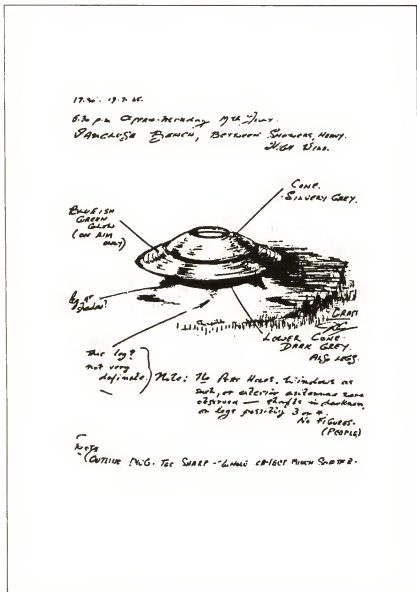 17.30. 19.7.65.
5.30 p.m. Approx. Monday 19th July.
VAUCLUSE BEACH, BETWEEN SHOWERS, HEAVY.
HIGH WIND.
CONE.
SILVERY GREY.
BLUEISH
GREEN
GLOW
(ON RIM
ONLY)
leg or
shadow?
GRASS
LOWER CONE.
DARK GREY.
ALSO LEGS.
This leg?
not very
definite.
Note: No Port Holes, Windows as
such, or exterior antennae were
observed — in darkness,
or legs possibly 3 or 4.
NO FIGURES.
(PEOPLE)
NOTE
(OUTLINE TOO SHARP - WHOLE OBJECT MUCH